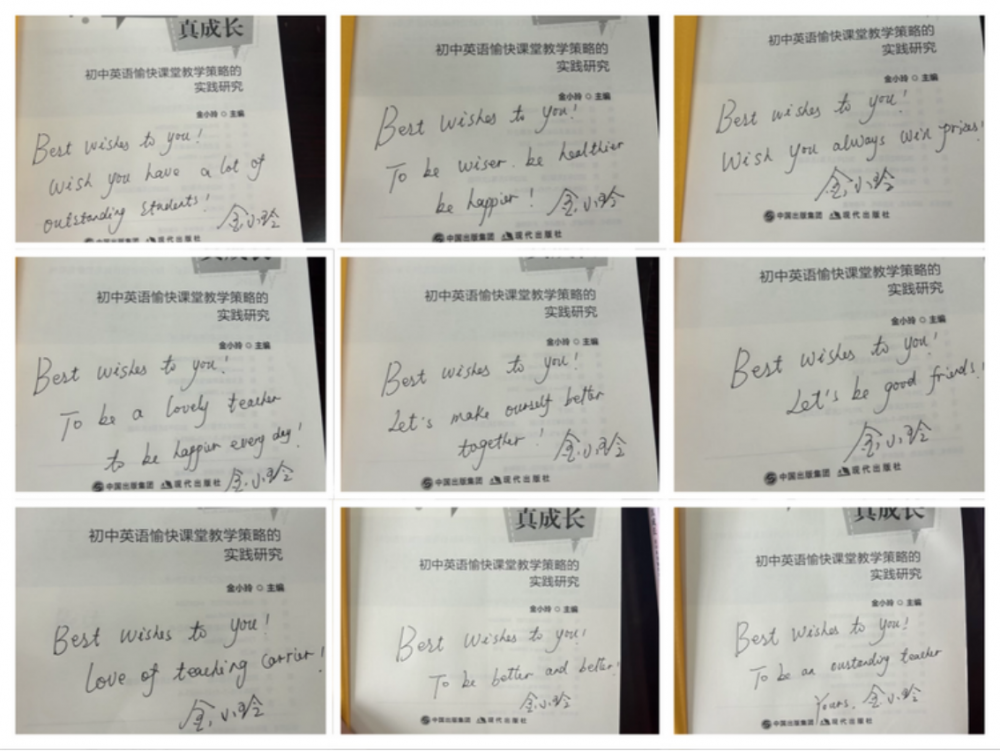 真成长
初中英语愉快课堂教学策略的
实践研究
金小玲 主编
Best wishes to you!
Wish you have a lot of
outstanding students!
金小玲
中国出版集团 现代出版社
初中英语愉快课堂教学策略的
实践研究
金小玲 主编
Best wishes to you!
To be wiser. be healthier
be happier! 金小玲
中国出版集团 现代出版社
初中英语愉快课堂教学策略的
实践研究
金小玲 主编
Best wishes to you!
Wish you always win prizes!
金小玲
中国出版集团 现代出版社
初中英语愉快课堂教学策略的
实践研究
金小玲 主编
Best wishes to you!
To be a lovely teacher
to be happier every day!
金小玲
中国出版集团 现代出版社
初中英语愉快课堂教学策略的
实践研究
金小玲 主编
Best wishes to you!
Let's make ourself better
together! 金小玲
中国出版集团 现代出版社
初中英语愉快课堂教学策略的
实践研究
金小玲 主编
Best wishes to you!
Let's be good friends!
金小玲
中国出版集团 现代出版社
初中英语愉快课堂教学策略的
实践研究
金小玲 主编
Best wishes to you!
Love of teaching carrier!
金小玲
真成长
初中英语愉快课堂教学策略的
实践研究
金小玲 主编
Best wishes to you!
To be better and better!
金小玲
中国出版集团 现代出版社
真成长
初中英语愉快课堂教学策略的
实践研究
金小玲 主编
Best wishes to you!
To be an oustanding teacher
Yours, 金小玲
中国出版集团 现代出版社